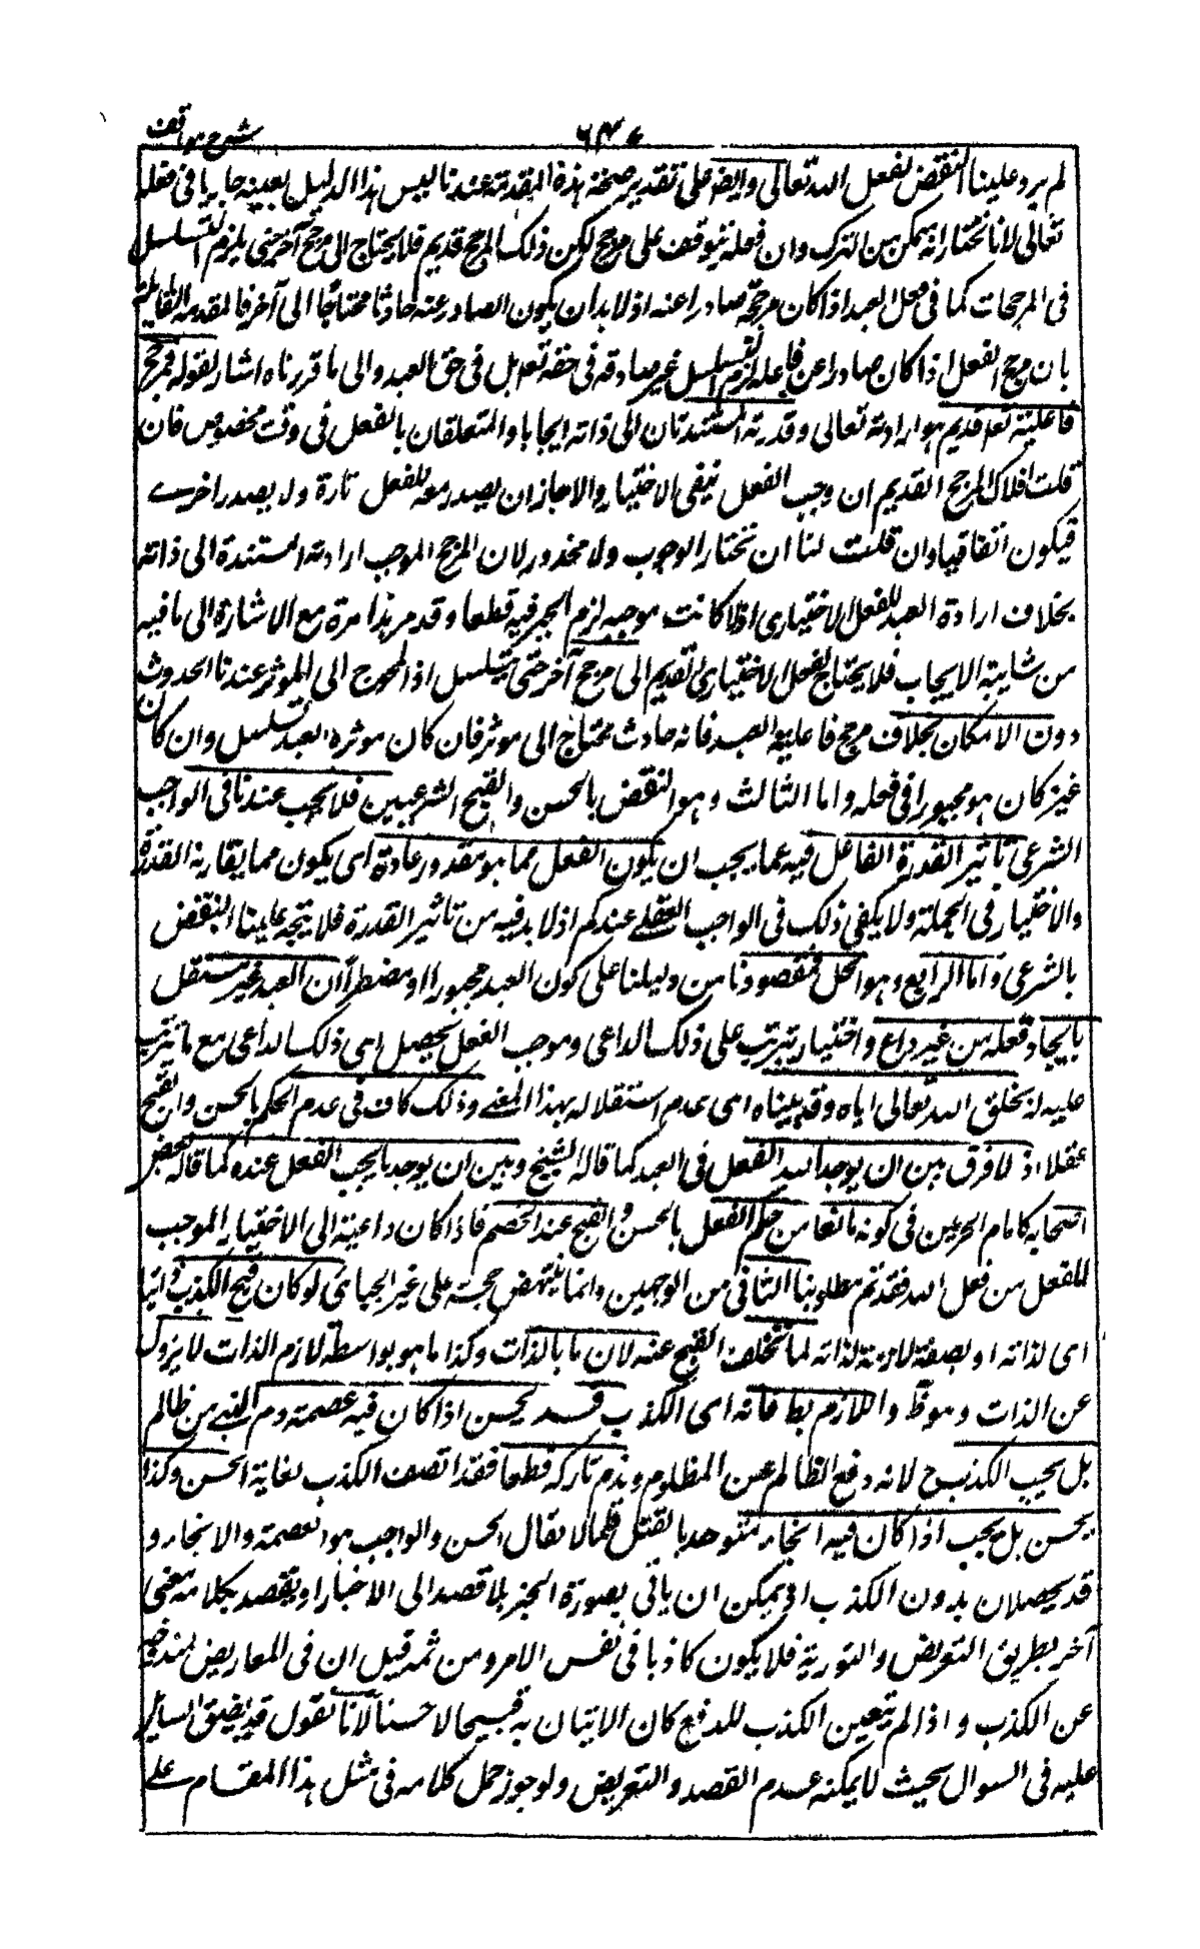 شرح مواقف
لم يرد علينا النقض بفعل الله تعالى وايضا على تقدير صحة هذه المقدمة عندنا ليس هذا الدليل بعينه جاريا فى فعله
تعالى لانا نختار انه يمكن من الترك وان فعله يتوقف على مرجح لكن ذلك المرجح قديم فلا يحتاج الى مرجح آخر حتى يلزم التسلسل
فى المرجحات كما فى فعل العبد اذا كان مرجحه صادرا عنه اذ لا بد ان يكون الصادر عنه حادثا محتاجا الى آخر فالمقدمة القائلة
بان مرجح الفعل اذا كان صادرا عن فاعله لزم التسلسل غير صادقة فى حقه تعه بل فى حق العبد والى ما قررناه اشار بقوله فمرجح
فاعليته تعه قديم هو ارادته تعالى وقدرته المستندتان الى ذاته ايجابا والمتعلقان بالفعل فى وقت مخصوص فان
قلت فذلك المرجح القديم ان وجب الفعل نيفى الاختيار والا جاز ان يصدر معه الفعل تارة ولا يصدر اخرے
فيكون اتفاقيا وان قلت لنا ان نختار الوجوب ولا محذور لان المرجح الموجب ارادته المستندة الى ذاته
بخلاف ارادة العبد للفعل الاختيارى اذا كانت موجبه لزم الجبر فيه قطعا وقد مر هذا مرة مع الاشارة الى ما فيه
من شايبة الايجاب فلا يحتاج لفعل الاختيارى القديم الى مرجح آخر حتى يتسلسل اذ المحوج الى المؤثر عندنا الحدوث
دون الامكان بخلاف مرجح فاعلية العبد فانه حادث محتاج الى موثر فان كان موثره العبد تسلسل وان كان
غيره كان هو مجبورا فى فعله واما الثالث وهو النقض بالحسن والقبح الشرعيين فلا يجب عندنا فى الواجب
الشرعى تاثير القدرة الفاعل فيه عما يجب ان يكون الفعل مما هو مقدور عادة اى يكون مما يقارنه القدرة
والاختيار فى الجملة ولا يكفى ذلك فى الواجب العقلے عندكم اذ لا بد فيه من تاثير القدرة فلا يتجه علينا النقض
بالشرعى واما الرابع وهو الحل فمقصودنا من دليلنا على كون العبد مجبورا او مضطرا ان العبد غير مستقل
بايجاد فعله من غير داع واختيار يترتب على ذلك الداعى وموجب الفعل يحصل اى ذلك الداعى مع ما يترتب
عليه له بخلق الله تعالى اياه وقد بيناه اى عدم استقلاله بهذا المعنے وذلك كاف فى عدم الحكم بالحسن والقبح
عقلا اذ لا فرق بين ان يوجد الله الفعل فى العبد كما قاله الشيخ وبين ان يوجد ما يجب الفعل عنده كما قاله بعض
اصحابه كامام الحرمين فى كونه مانعا من حكم الفعل بالحسن والقبح عند الخصم فاذا كان داعيته الى الاختيار الموجب
للفعل من فعل الله فقد تم مطلوبنا الثانى من الوجهين وانما ينتهض حجة على غير الجبائى لو كان قبح الكذب ذاتيا
اى لذاته او بصفة لازمة لذاته لما تخلف القبح عنه لان ما بالذات وكذا ما هو بواسطة لازم الذات لا يزول
عن الذات وهو ظ واللازم بط فانه اى الكذب قد يحسن اذا كان فيه عصمة دم النبے من ظالم
بل يجب الكذب ح لانه دفع الظالم عن المظلوم ويذم تاركه قطعا فقد اتصف الكذب بغاية الحسن وكذا
يحسن بل يجب اذا كان فيه انجاء متوعد بالقتل ظلما لا يقال الحسن والواجب هو العصمة والانجاء و
قد يحصلان بدون الكذب اذ يمكن ان ياتى بصورة الخبر بلا قصد الى الاخبار او يقصد بكلامه معنى
آخر بطريق التعريض والتورية فلا يكون كاذبا فى نفس الامر ومن ثمه قيل ان فى المعاريض لمندوحة
عن الكذب واذا لم يتعين الكذب للدفع كان الاتيان به قبيحا لا حسنا لانا نقول قد يضيق السايل
عليه فى السوال بحيث لا يمكنه عدم القصد والتعريض ولو جوز حمل كلامه فى مثل هذا المقام علے